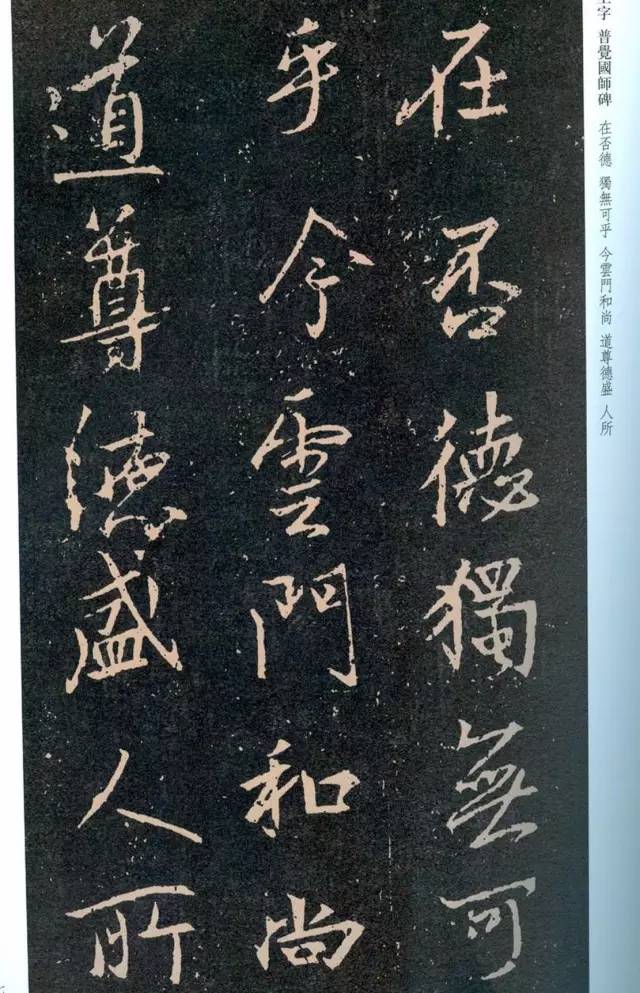 字 普覺國師碑 在否德 獨無可乎 今雲門和尚 道尊德盛 人所
在否德獨無可
乎今雲門和尚
道尊德盛人所